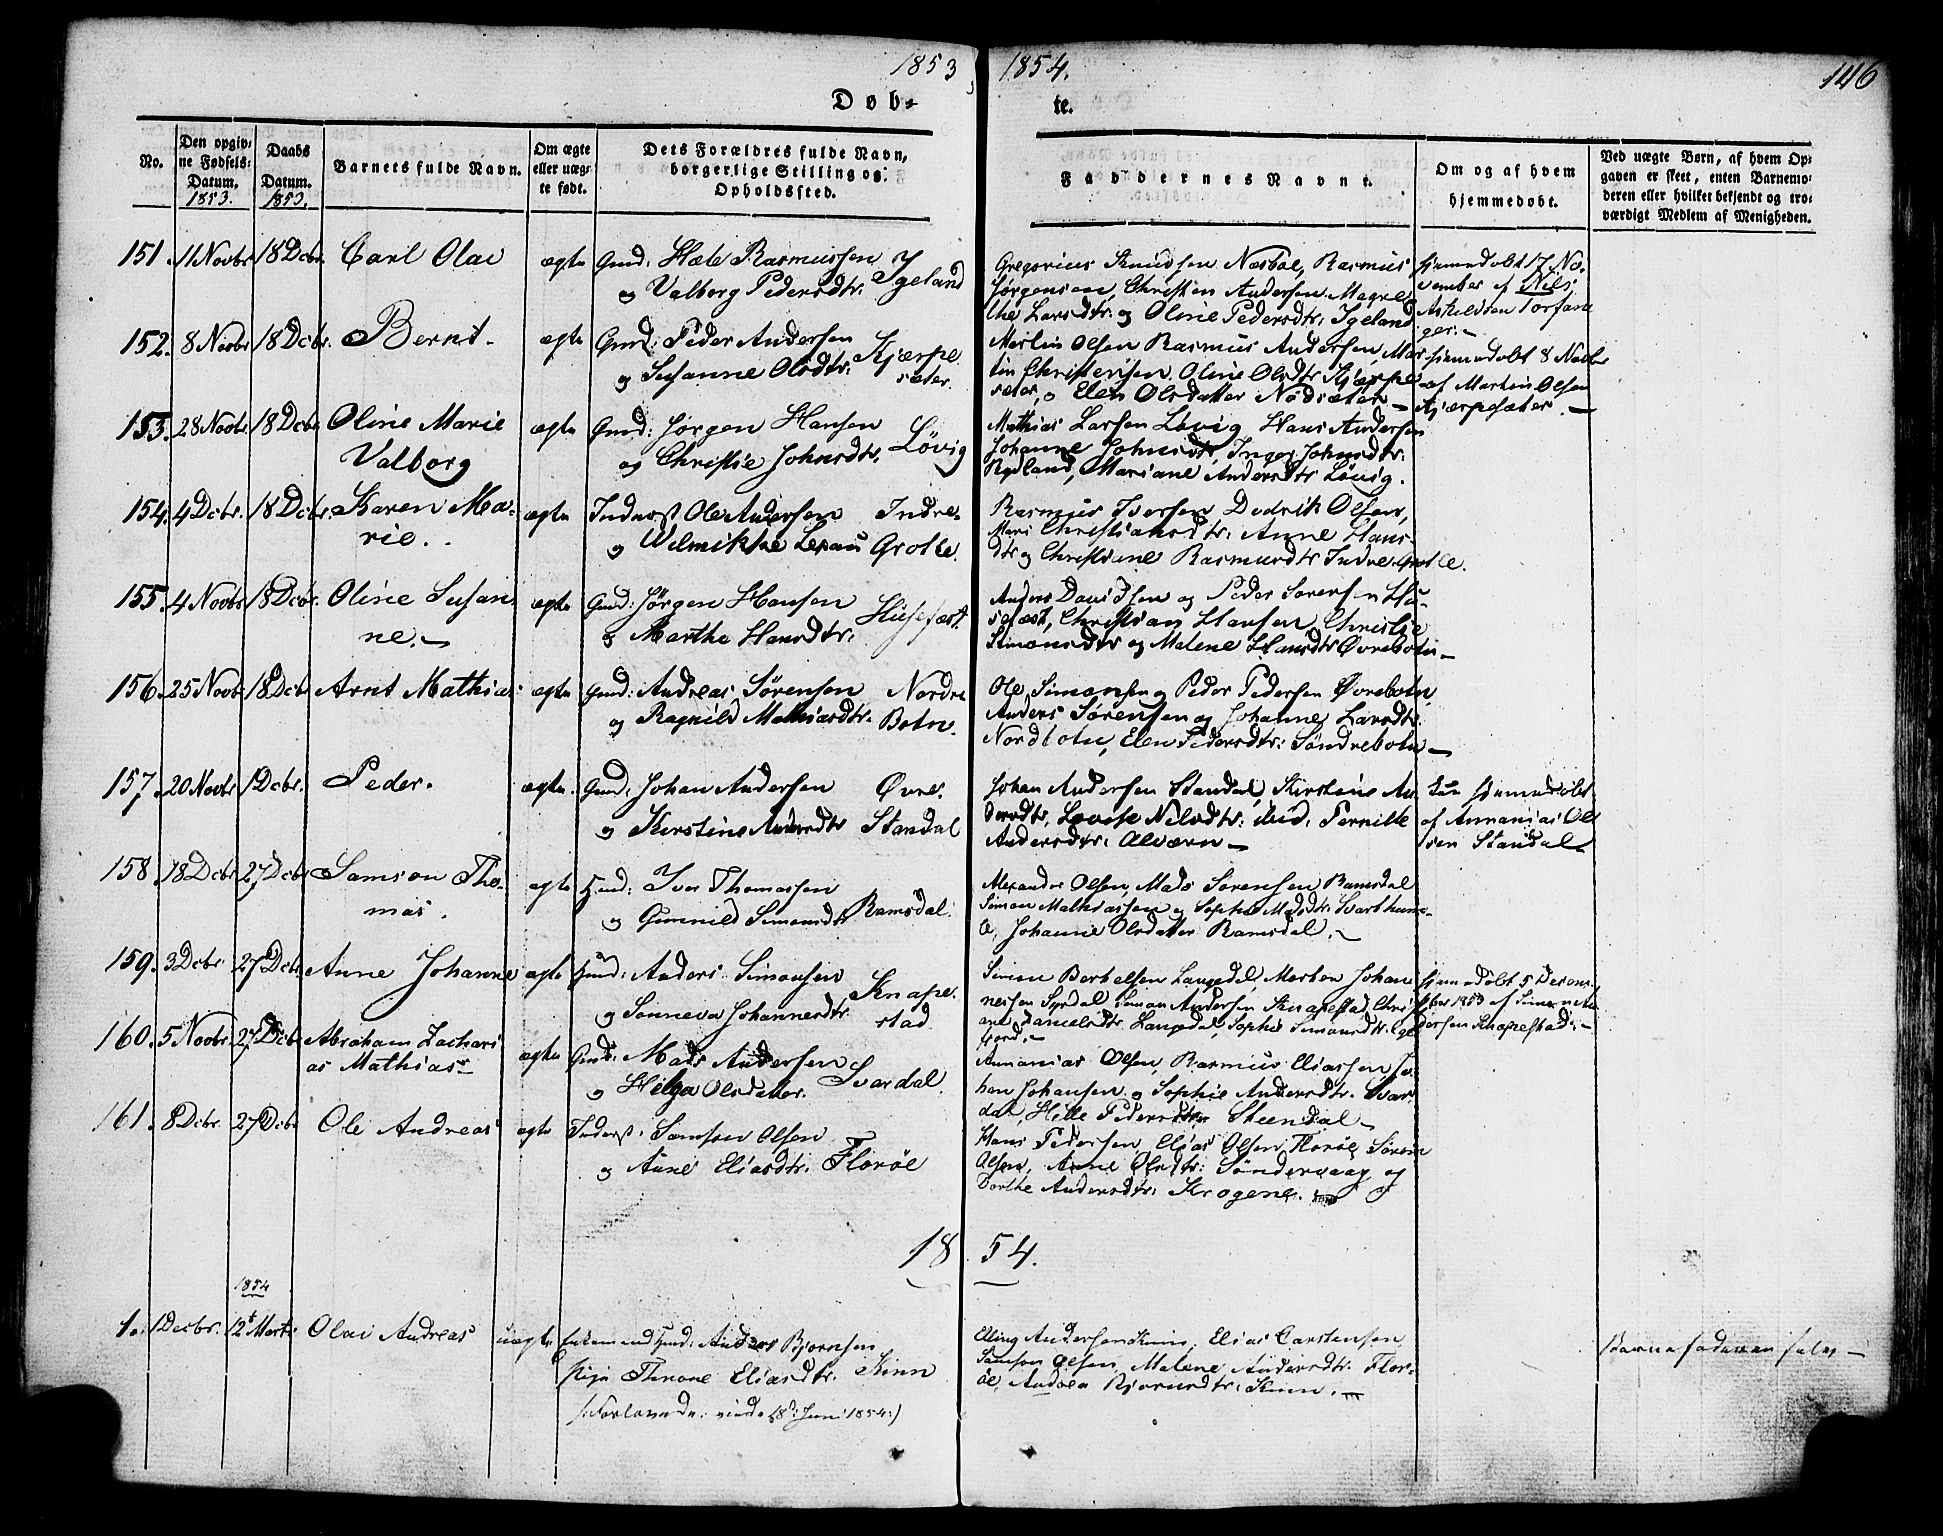 1853 1854. 146
Døb- te.
No.
Den opgiv-
ne Fødsels-
Datum.
1853.
Daabs
Datum.
1853.
Barnets fulde Navn.
Om ægte
eller uæg-
te født.
Dets Forældres fulde Navn,
borgerlige Stilling og
Opholdssted.
Faddernes Navne.
Om og af hvem
hjemmedøbt.
Ved uægte Børn, af hvem Op-
gaven er skeet, enten Barnemo-
deren eller hvilket bekjendt og tro-
værdigt Medlem af Menigheden.
151. 11 Novbr 18 Dcbr. Carl Olai ægte Gmd: Rasmussen Igeland
og Valborg Pedersdtr:
Gregorius Knudsen Næsbøe, Rasmus
Jørgensen, Christen Andersen, Magre-
the Larsdtr: og Oline Pedersdtr: Igeland
hjemmedøbt 17 No-
vember af Nils
Askildsen Torfan
ger.-
152. 8 Novbr 18 Dcbr. Bernt- ægte Gmd: Peder Andersen Kjærpe
og Susanne Olsdtr: sæter.
Martin Olsen Rasmus Andersen, Mar
tin Christensen, Oline Olsdtr Kjærpe
sæter, o Elen Olsdatter Nodsæter-
hjemmedøbt 8 Novbr
af Martin Olsen
Kjærpesæter.-
153. 28 Novbr 18 Dcbr. Oline Marie ægte Gmd: Jørgen Hansen Løvig
Valborg og Christie Johnsdtr.
Mathias Larsen Løvig Hans Andersen
Johanne Johnsdtr, Inger Johnsdtr:
Rylland, Mariane Andersdtr Løvig.
154. 4 Dcbr. 18 Dcbr. Karen Ma- ægte Inderst Ole Andersen Indre-
rie. og Grotle.
Rasmus Iversen, Dedrik Olsen,
Mari Christiansdtr: Anne Hans-
dtr og Christiane Rasmusdtr Indre Grotle.
155. 4 Novbr 18 Dcbr. Oline Susan- ægte Gmd: Jørgen Hansen Husefæst.
ne.- og Marthe Hansdtr:
Anders Davidsen og Peder Sørensen Hu-
sefæst, Christian Hansen, Christie
Simonsdtr og Malene Hansdtr Øvrebotn-
156. 25 Novbr 18 Dcbr Arnt Mathias ægte Gmd: Andreas Sørensen Nordre
og Ragnild Mathiasdtr. Botn.
Ole Simonsen og Peder Pedersen Øvrebotn,
Anders Sørensen og Johanne Larsdtr.
Nordbotn, Elen Pedersdtr: Søndrebotn-
157. 20 Novbr 1 Dcbr. Peder. ægte. Gmd: Johan Andersen Øvre
og Kirstine Andersdtr Standal
Johan Andersen Standal, Kirstine An-
dersdtr, Lovise Nilsdtr: ibid, Pernille
Andersdtr: Alværn-
hjemmedøbt
af Annanias Ol
sen Standal
158. 18 Dcbr 27 Dcbr Samson Tho- ægte Hmd: Iver Thomassen
mas. og Gunnild Simonsdtr Ramsdal.
Alexander Olsen, Mads Sørensen Ramsdal
Simon Mathiassen og Sophie Madsdtr: Svarthum-
le, Johanne Olsdatter Ramsdal.-
159. 3 Dcbr 27 Dcbr. Anne Johanne ægte Hmd: Anders Simonsen Knape-
og Sønneva Johannesdtr stad
Simon Bertelsen Langedal, Morten Johan
nessen Syrdal, Simon Andersen Knapestad, Chri
ane Danielsdtr Langedal, Sophie Simonsdtr: Ege
fjord.-
hjemmedøbt 5 Decem-
ber 1853 af Simon An
dersen Knapestad.-
160. 5 Novbr 27 Dcbr Abraham Zachari ægte Gmd: Mads Andersen
as Mathias- og Helga Olsdatter. Svardal.
Annanias Olsen, Rasmus Eliassen, Jo-
han Johansen, og Sophie Andersdtr. Svar-
dal, Hille Pedersdtr Steendal-
161. 8 Dcbr. 27 Dcbr Ole Andreas ægte Inderst: Samson Olsen
og Anne Eliasdtr: Florøe
Hans Pedersen, Elias Olsen Florøe, Sørsen
Olsen, Anne Olsdtr: Søndervaag og
Dorthe Andersdtr: Krogene.
1854.
1854
1. 1 Decbr. 12t Marts Olai Andreas uægte Enkemand Hmd: Anders Bjørnsen
Pige Throne Eliasdtr. Kinn
(: Forlovede: viede 18de Juni 1854:)
Elling Andersen Kinn, Elias Carstensen,
Samson Olsen, Malene Andersdtr. Flor-
øe, Andrea Bjørnsdtr: Kinn.
Barnefaderen selv-